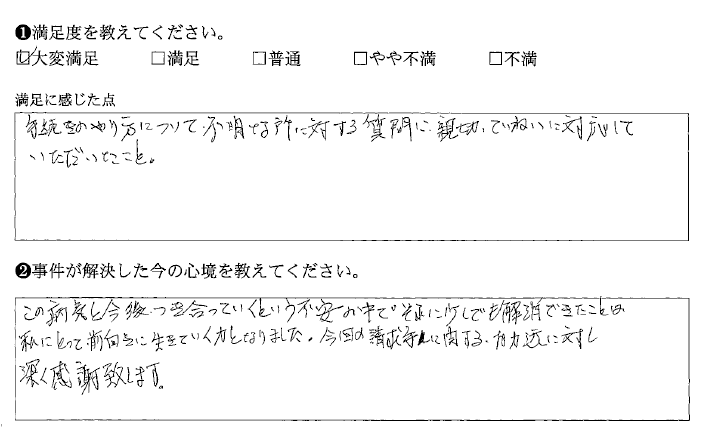 ❶満足度を教えてください。
☑大変満足 □満足 □普通 □やや不満 □不満
満足に感じた点
手続きのやり方について、不明な所に対する質問に、親切、ていねいに対応して
いただいたこと。
❷事件が解決した今の心境を教えてください。
この病気と今後、つき合っていくという不安の中で 少しでも解消できたことは
私にとって前向きに生きていく力となりました。今回の請求 に関する、お力 に対し
深く感謝致します。